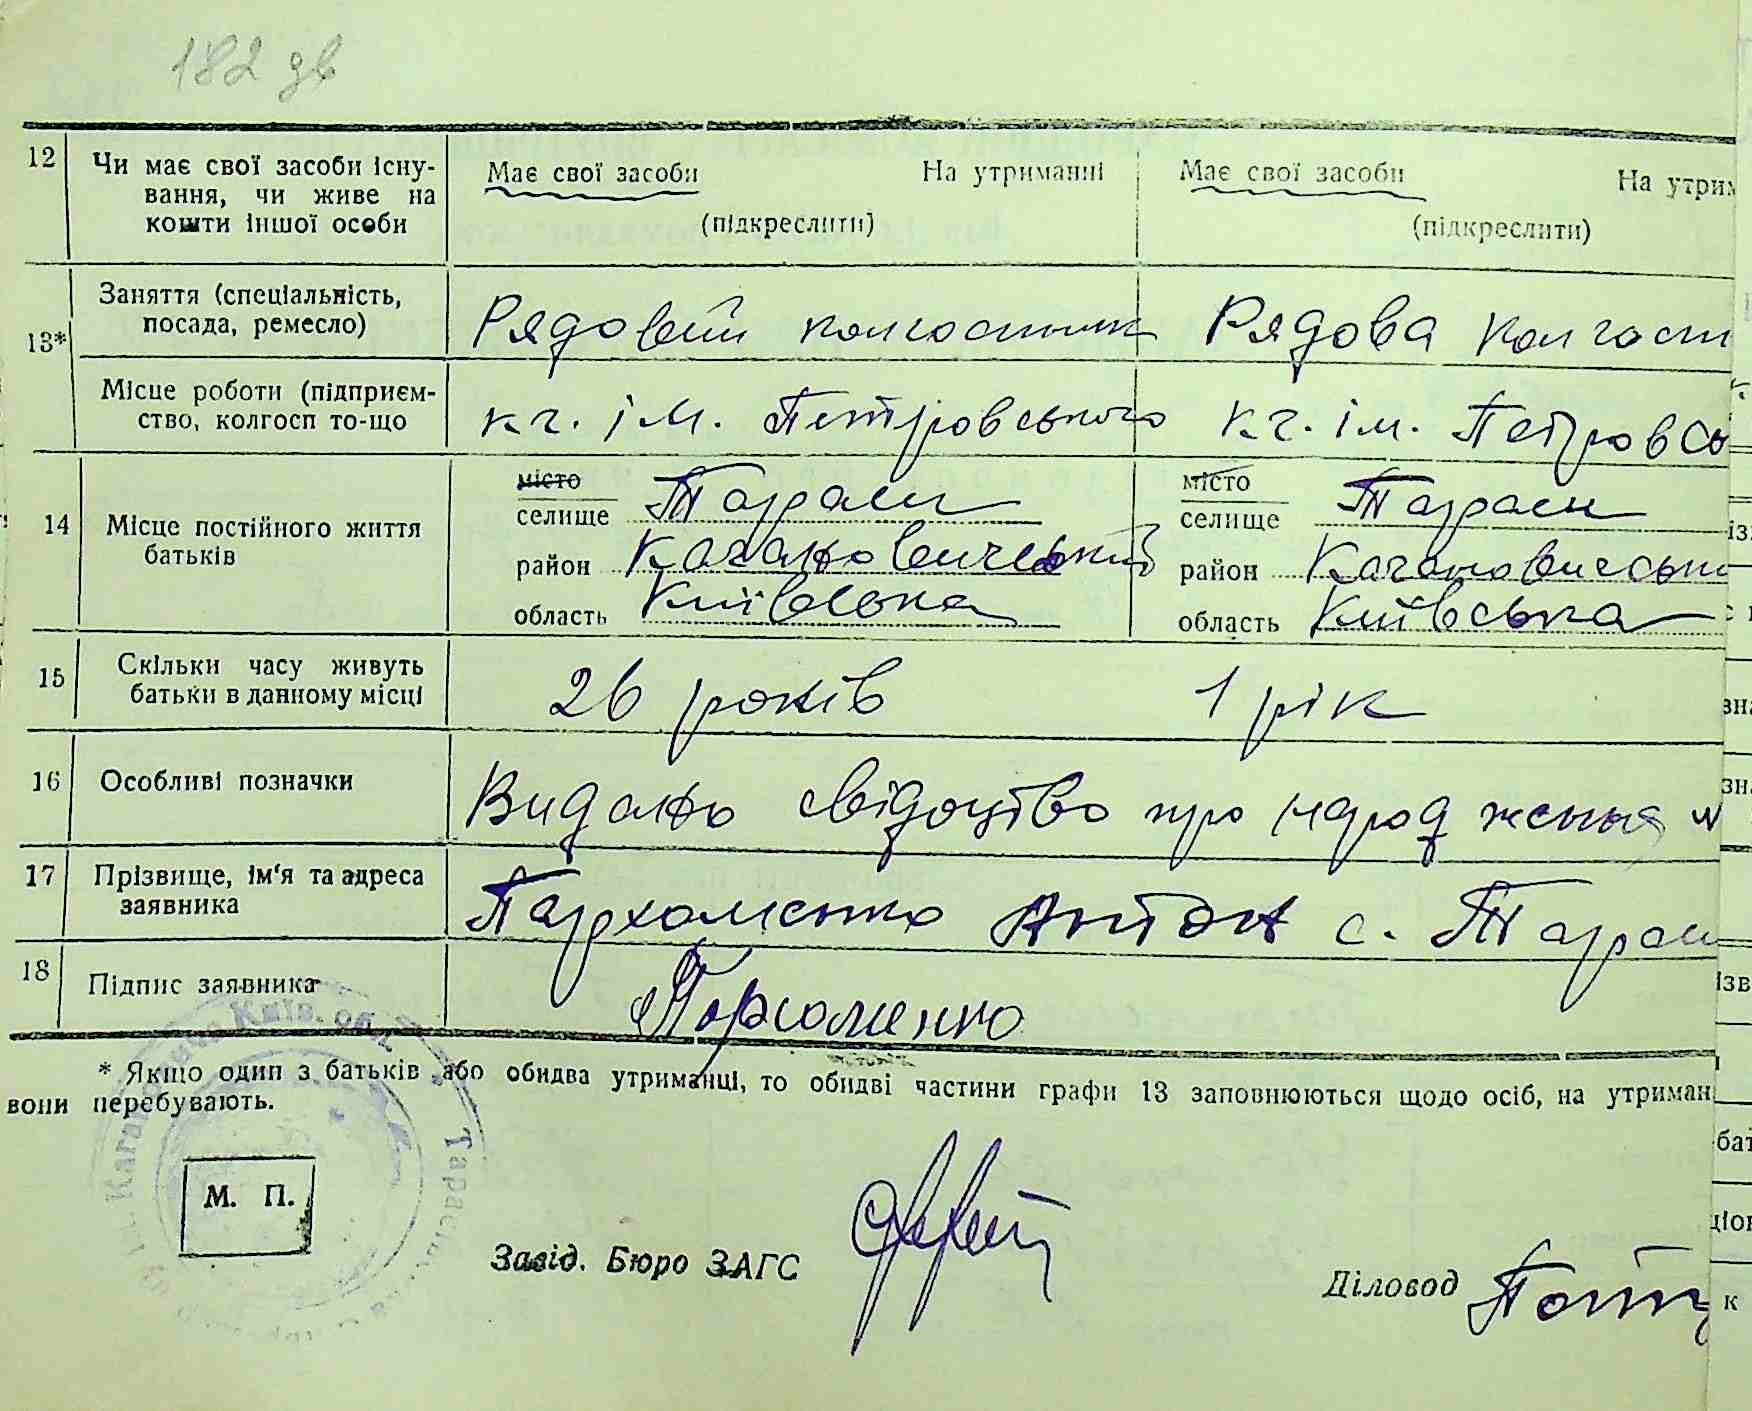 182 зв
12 Чи має свої засоби існу-
вання, чи живе на
кошти іншої особи
Має свої засоби На утриманні
(підкреслити)
Має свої засоби На утрим
(підкреслити)
13* Заняття (спеціальність,
посада, ремесло)
Рядовий колгоспник Рядова колгосп
Місце роботи (підприєм-
ство, колгосп то-що
кг. ім. Петровського кг. ім. Петровсь
14 Місце постійного життя
батьків
місто
селище Тараси
район Кагановичський
область Київська
місто
селище Тараси
район Кагановичськи
область Київська
15 Скільки часу живуть
батьки в данному місці
26 років 1 рік
16 Особливі позначки
Видано свідоцтво про народження №
17 Прізвище, ім'я та адреса
заявника
Пархоменко Антон с. Тарас
18 Підпис заявника
Пархоменко
* Якщо один з батьків або обидва утриманці, то обидві частини графи 13 заповнюються щодо осіб, на утриман
вони перебувають.
М. П.
Завід. Бюро ЗАГС
Діловод